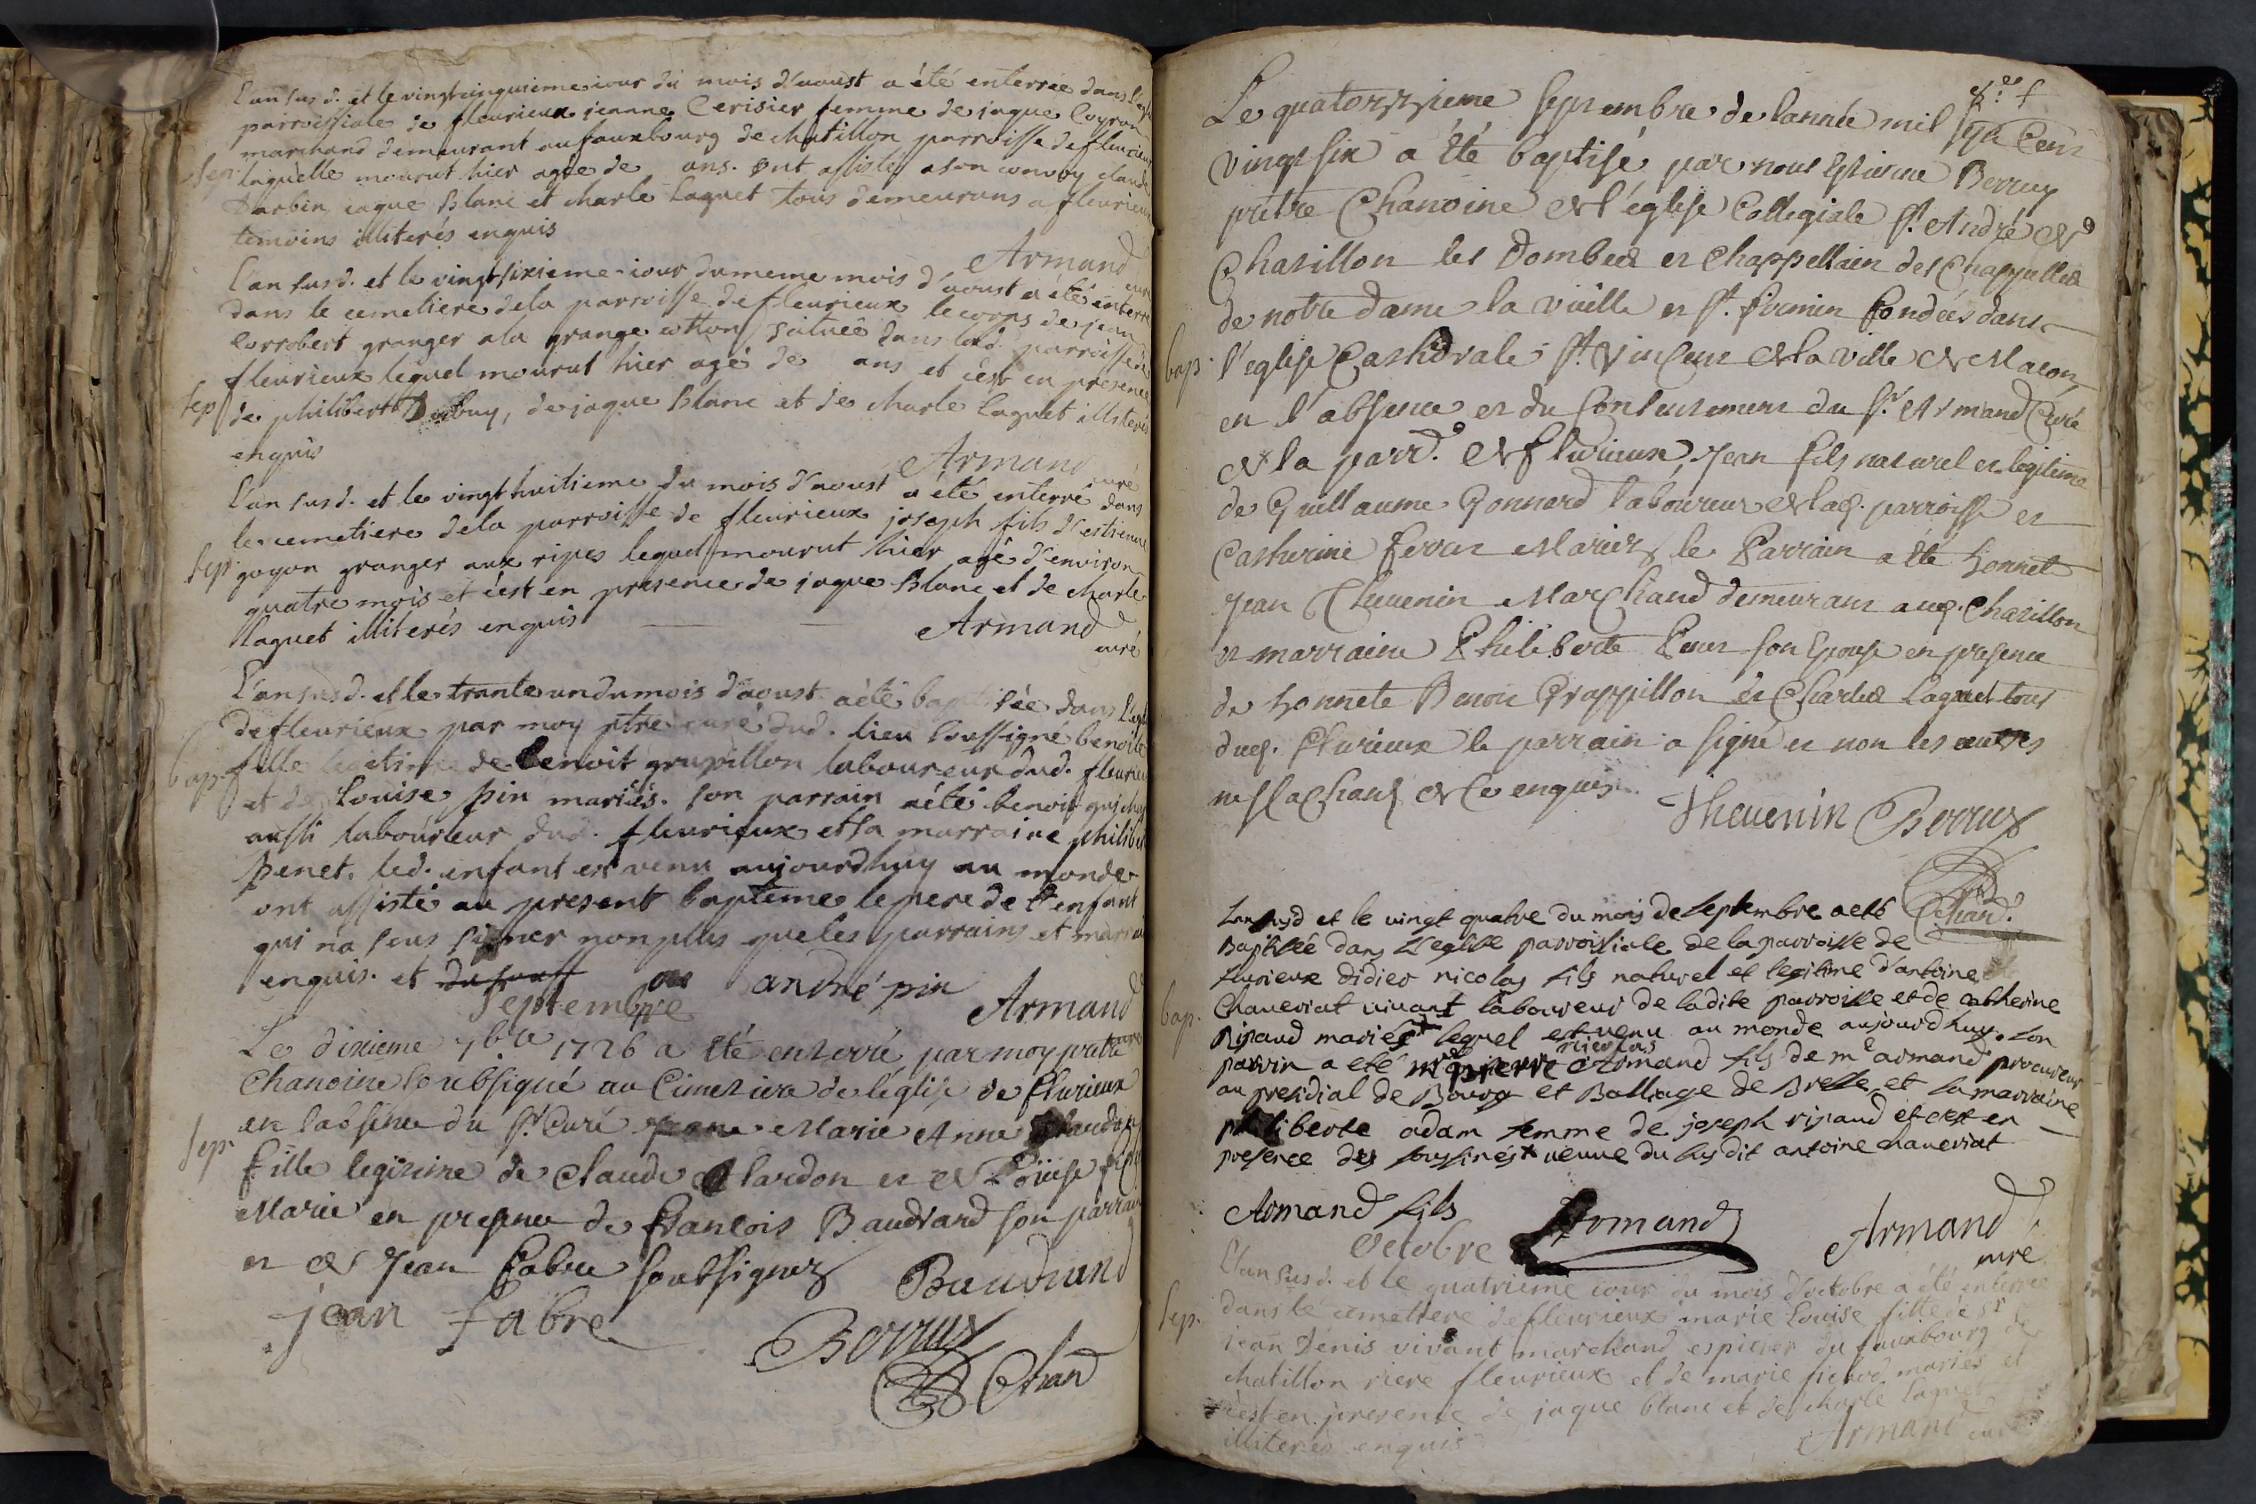 l'an susd. et le vingtcinquieme iour du mois d'aoust a été enterrée dans l'egl
parroissiale de fleurieux jeanne Cerisier femme de jaque Coyron
marchand demeurant au fauxbourg de chatillon parroisse de fleurieux
sep. laquelle mourut hier agée de ans. ont assistés a son convoy claude
Darbin jaque Blanc et charle Laguet tous demeurans a fleurieux
temoins illiterés enquis
Armand curé
l'an susd. et le vingt sixieme iour du meme mois d'aoust a été enterré
dans le cemetiere de la parroisse de fleurieux le corps de jean
Corrobert granger a la grange cotton située dans lad. parroisse de
fleurieux lequel mourut hier agé de ans et c'est en presence
sep. de philibert Dubuy, de jaque Blanc et de charle Laguet illiterés
enquis
Armand curé
L'an susd. et le vingt huitieme du mois d'aoust a été enterré dans
le cemetiere de la parroisse de fleurieux joseph fils d'estienne
sep. goyon granger aux ripes lequel mourut hier agé d'environ
quatre mois et c'est en presence de jaque Blanc et de charle
laguet illiterés enquis
Armand
curé
L'an susd. et le trante un du mois d'aoust a été baptisée dans l'egl
de fleurieux par moy ptre curé dud. lieu soussigné benoite
bap. fille legitime de benoit grapillon laboureur dud. fleurieux
et de Louise pin mariés. son parrain a été benoit
aussi laboureur dud. fleurieux et la marraine philiber
penet. led. enfant est venu aujourdhuy au monde
ont assisté au present bapteme le pere de l'enfant
qui na seus signer non plus que les parrains et marrai
enquis. et andré pin
Septembre
Armand
curé
Le dixieme 7bre 1726 a été enterré par moy pretre
Chanoine soubsigné au Cimetiere de l'église de flurieux
en l'absence du Sr. Curé Marie Anne Chardon
sep. fille legitime de Claude Chardon et de Loüise
Marie en presence de francois Baudrand son parrain
et de Jean fabre soubsignez
Baudrand
jean fabre
Berruy
Chan
Le quatorzzieme Septembre de lannée mil sept Cent
vingt six a été baptisé par nous Estienne Berruy
prêtre Chanoine de l'église Collegiale St. André de
Chatillon les Dombes et Chappellain des Chappelles
de notre dame la vieille et St. firmin fondées dans
bap. l'eglise Cathedrale St. Vincent de la ville de Macon,
en l'absence et du Consentement du Sr. Armand Curé
de la parr. de flurieux, Jean fils naturel et legitime
de Guillaume Gonnard laboureur de lad. parroisse et
Catherine ferrar Mariez le Parrain a été honnete
Jean Thevenin Marchand demeurant aud. Chatillon
et marraine Philiberte Penet son Epouse en presence
de honnete Benoit Grappillon et Charles Laguet tous
dud. flurieux le parrain a signé et non les autres
ne sachans de ce enquis.
Thevenin Berruy
Chan.
Lan susd et le vingt quatre du mois de septembre a eté
Baptisée dans L'eglise parroissiale de la parroisse de
flurieux didier nicolas fils naturel et legitime d'antoine
Chaneriat vivant laboureur de ladite parroisse et de catherine
bap. Ripaud mariés lequel est venu au monde aujourdhuy. son
nicolas
parrin a eté mr pierre Armand fils de me armand procureur
au presidial de Bourg et Balliage de Bresse et la marraine
philiberte adam femme de joseph ripaud et c'est en
presence des soussinés + veuve du susdit antoine chaneriat
Armand fils
Armand
Armand
curé
Octobre
L'an susd. et le quatrieme iour du mois d'octobre a été enterrée
dans le cemetiere de fleurieux marie Louise fille de Sr
sep. jean Denis vivant marchand espicier du fauxbourg de
chatillon riere fleurieux et de marie mariés et
c'est en presence de jaque blanc et de charle laguet
illiterés enquis
Armand curé